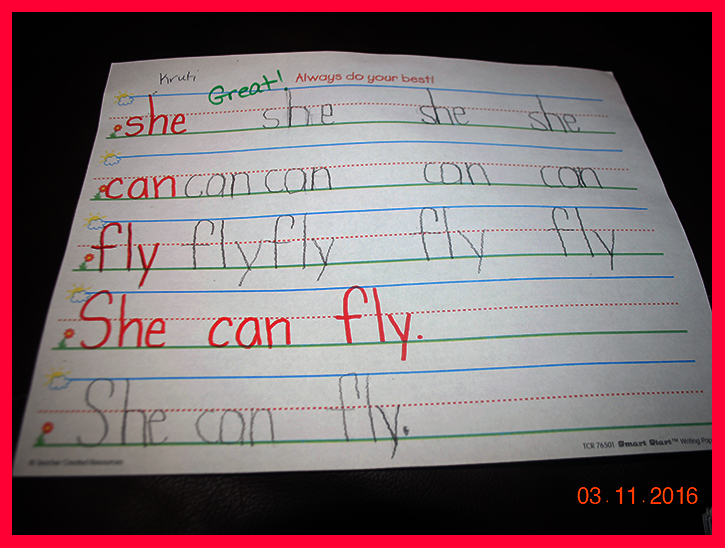 Kruti Great! Always do your best!
she she she she
can can can can can
fly fly fly fly fly
She can fly.
She can fly.
TCR 76501 Smart Start™ Writing Pap
© Teacher Created Resources
03.11.2016